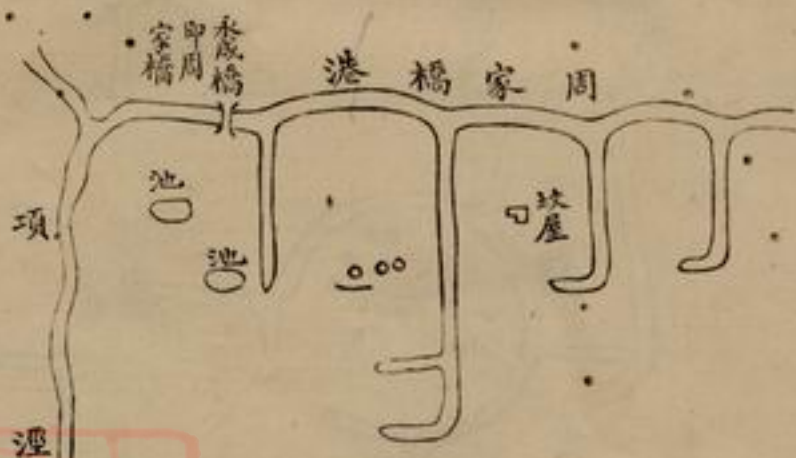 周家橋港
永成橋
即周
家橋
池
池
坟屋
項
涇